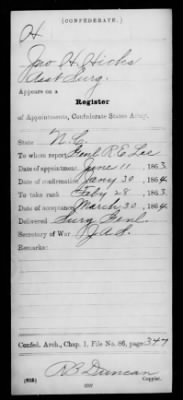 (CONFEDERATE.)
H
Jno H. Hicks
Asst Surg.
Appears on a
Register
of Appointments, Confederate States Army.
State N.C.
To whom report Genl R E Lee
Date of appointment June 11, 1863
Date of confirmation Jany 30, 1864.
To take rank Feby 28, 1863.
Date of acceptance March 30, 1864.
Delivered Surg Genl.
Secretary of War J.A.S.
Remarks:
Confed. Arch., Chap. 1, File No. 86, page 347
R B Duncan
Copyist.